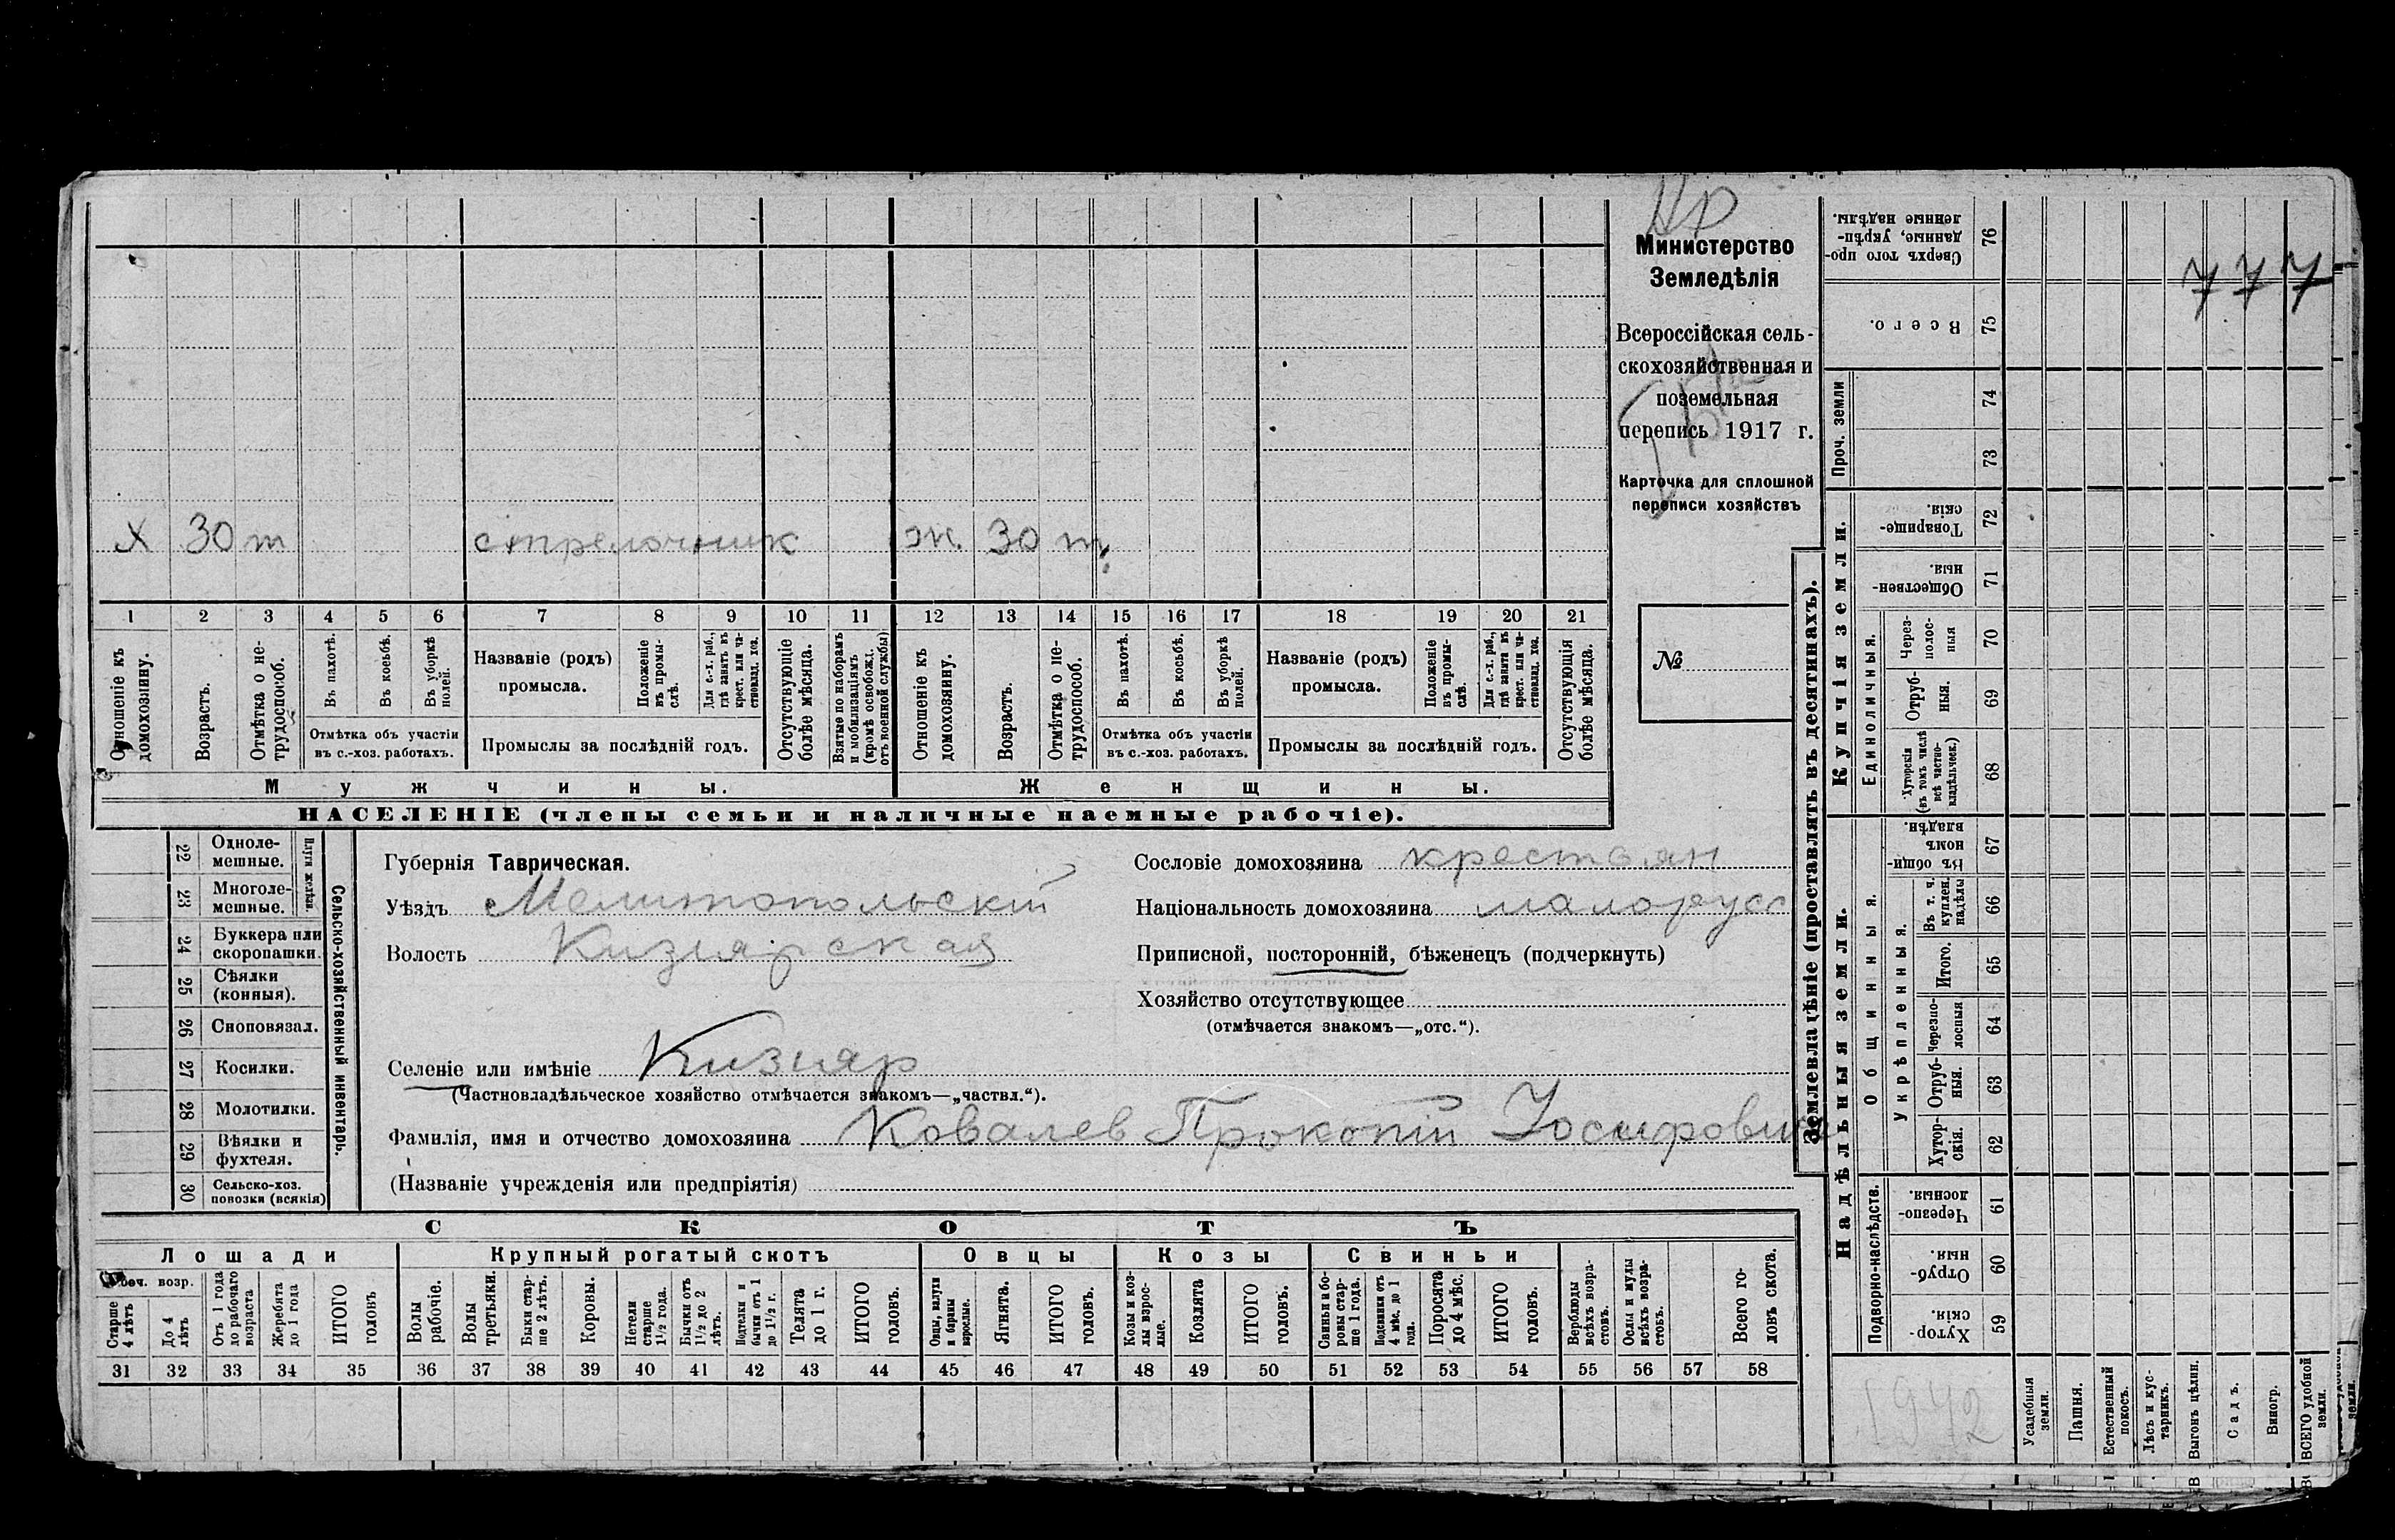 НР
Министерство
Земледѣлія
Всероссійская сель-
скохозяйственная и
поземельная
перепись 1917 г.
Карточка для сплошной
переписи хозяйствъ
№
х 30 т стрелочник ж. 30 т
1 2 3 4 5 6 7 8 9 10 11 12 13 14 15 16 17 18 19 20 21
Отношеніе къ домохозяину.
Возрастъ.
Отмѣтка о не-трудоспособ.
Въ пахотѣ.
Въ косьбѣ.
Въ уборкѣ полей.
Отмѣтка объ участіи
въ с.-хоз. работахъ.
Названіе (родъ)
промысла.
Положеніе въ промы-слѣ.
Для с.-х. раб., гдѣ занятъ въ крест. или ча-стновлад. хоз.
Промыслы за послѣдній годъ.
Отсутствующіе болѣе мѣсяца.
Взятые по наборамъ и мобилизаціямъ (кромѣ освобожд. отъ военной службы)
Отношеніе къ домохозяину.
Возрастъ.
Отмѣтка о не-трудоспособ.
Въ пахотѣ.
Въ косьбѣ.
Въ уборкѣ полей.
Отмѣтка объ участіи
въ с.-хоз. работахъ.
Названіе (родъ)
промысла.
Положеніе въ промы-слѣ.
Для с.-х. раб., гдѣ занята въ крест. или ча-стновлад. хоз.
Промыслы за послѣдній годъ.
Отсутствующія болѣе мѣсяца.
Мужчины. Женщины.
НАСЕЛЕНІЕ (члены семьи и наличные наемные рабочіе).
22 Одноле-мешные.
23 Многоле-мешные.
Плуги желѣзн.
24 Буккера или скоропашки.
25 Сѣялки (конныя).
26 Сноповязал.
27 Косилки.
28 Молотилки.
29 Вѣялки и фухтеля.
30 Сельско-хоз. повозки (всякія)
Сельско-хозяйственный инвентарь.
Губернія Таврическая.
Уѣздъ Мелитопольскій
Волость Кизиярская
Селеніе или имѣніе Кизияр
(Частновладѣльческое хозяйство отмѣчается знакомъ—„частвл.“).
Фамилія, имя и отчество домохозяина Ковалев Прокопій Іосифович
(Названіе учрежденія или предпріятія)
Сословіе домохозяина крестьян
Національность домохозяина малорусс
Приписной, посторонній, бѣженецъ (подчеркнуть)
Хозяйство отсутствующее
(отмѣчается знакомъ—„отс.“).
СКОТЪ
Лошади Крупный рогатый скотъ Овцы Козы Свиньи
Рабоч. возр.
Старше 4 лѣтъ
До 4 лѣтъ
Отъ 1 года до рабочаго возраста
Жеребята до 1 года
ИТОГО головъ
Волы рабочіе.
Волы третьяки.
Быки стар-ше 2 лѣтъ.
Коровы.
Нетели старше 1½ года.
Бычки отъ 1½ до 2 лѣтъ.
Подтелки и бычки отъ 1 до 1½ г.
Телята до 1 г.
ИТОГО головъ.
Овцы, валухи и бараны взрослые.
Ягнята.
ИТОГО головъ.
Козы и коз-лы взрос-лые.
Козлята
ИТОГО головъ.
Свиньи и бо-ровы стар-ше 1 года.
Подсвинки отъ 4 мѣс. до 1 года.
Поросята до 4 мѣс.
ИТОГО головъ.
Верблюды всѣхъ возра-стовъ.
Ослы и мулы всѣхъ возра-стовъ.
Всего го-ловъ скота.
31 32 33 34 35 36 37 38 39 40 41 42 43 44 45 46 47 48 49 50 51 52 53 54 55 56 57 58
Землевладѣніе (проставлять въ десятинахъ).
Купчія земли.
Надѣльныя земли.
Проч. земли
Единоличныя.
Общинныя.
Укрѣпленныя.
Подворно-наслѣдств.
Сверхъ того про-данные, укрѣп-ленные надѣлы. 76
Всего. 75
74
73
Товарище-скія. 72
Обществен-ныя. 71
Через-полос-ныя 70
Отруб-ныя. 69
Хуторскія (въ томъ числѣ всѣ частно-владѣльческ.) 68
Въ общин-номъ владѣн. 67
Въ т. ч. куплен. надѣлы 66
Итого. 65
Черезпо-лосныя 64
Отруб-ныя. 63
Хутор-скія. 62
Черезпо-лосныя. 61
Отруб-ныя. 60
Хутор-скія. 59
777
1942
Усадебныя земли.
Пашня.
Естественный покосъ.
Лѣсъ и кус-тарникъ.
Выгонъ цѣлин.
Садъ.
Виногр.
ВСЕГО удобной земли.